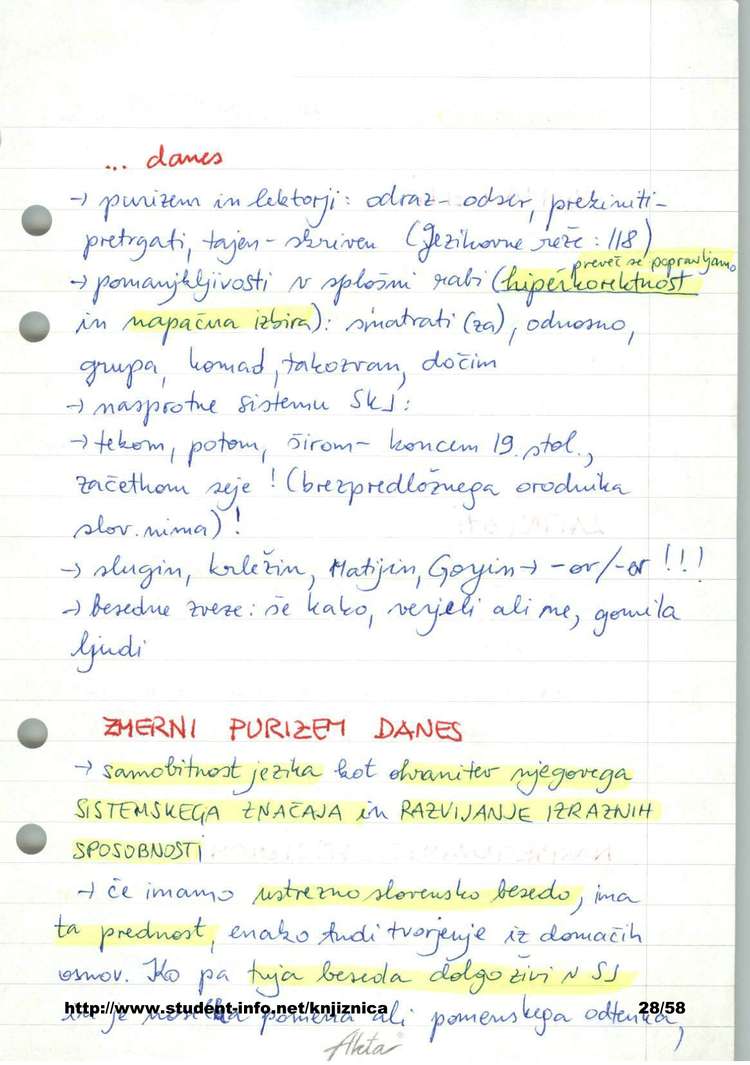 ... danes
→ purizem in lektorji: odraz - odsev, prekiniti -
pretrgati, tajen - skriven (Jezikovne reže : 118)
preveč se popravljamo
→ pomanjkljivosti v splošni rabi (hiperkorektnost
in napačna izbira): smatrati (za), odnosno,
grupa, komad, takozvan, dočim
→ nasprotne sistemu SKJ:
→ tekom, potom, širom - koncem 19. stol.,
začetkom seje! (brezpredložnega orodnika
slov. nima)!
→ slugin, krležin, Matijin, Goyin → -ov/-ev !!!
→ besedne zveze: še kako, verjeli ali ne, gomila
ljudi
ZMERNI PURIZEM DANES
→ samobitnost jezika kot ohranitev njegovega
SISTEMSKEGA ZNAČAJA in RAZVIJANJE IZRAZNIH
SPOSOBNOSTI
→ če imamo ustrezno slovensko besedo, ima
ta prednost, enako tudi tvorjenje iz domačih
osnov. Ko pa tuja beseda dolgo živi v SJ
http://www.student-info.net/knjiznica 28/58
in je nosilka pomena ali pomenskega odtenka,
Aleta